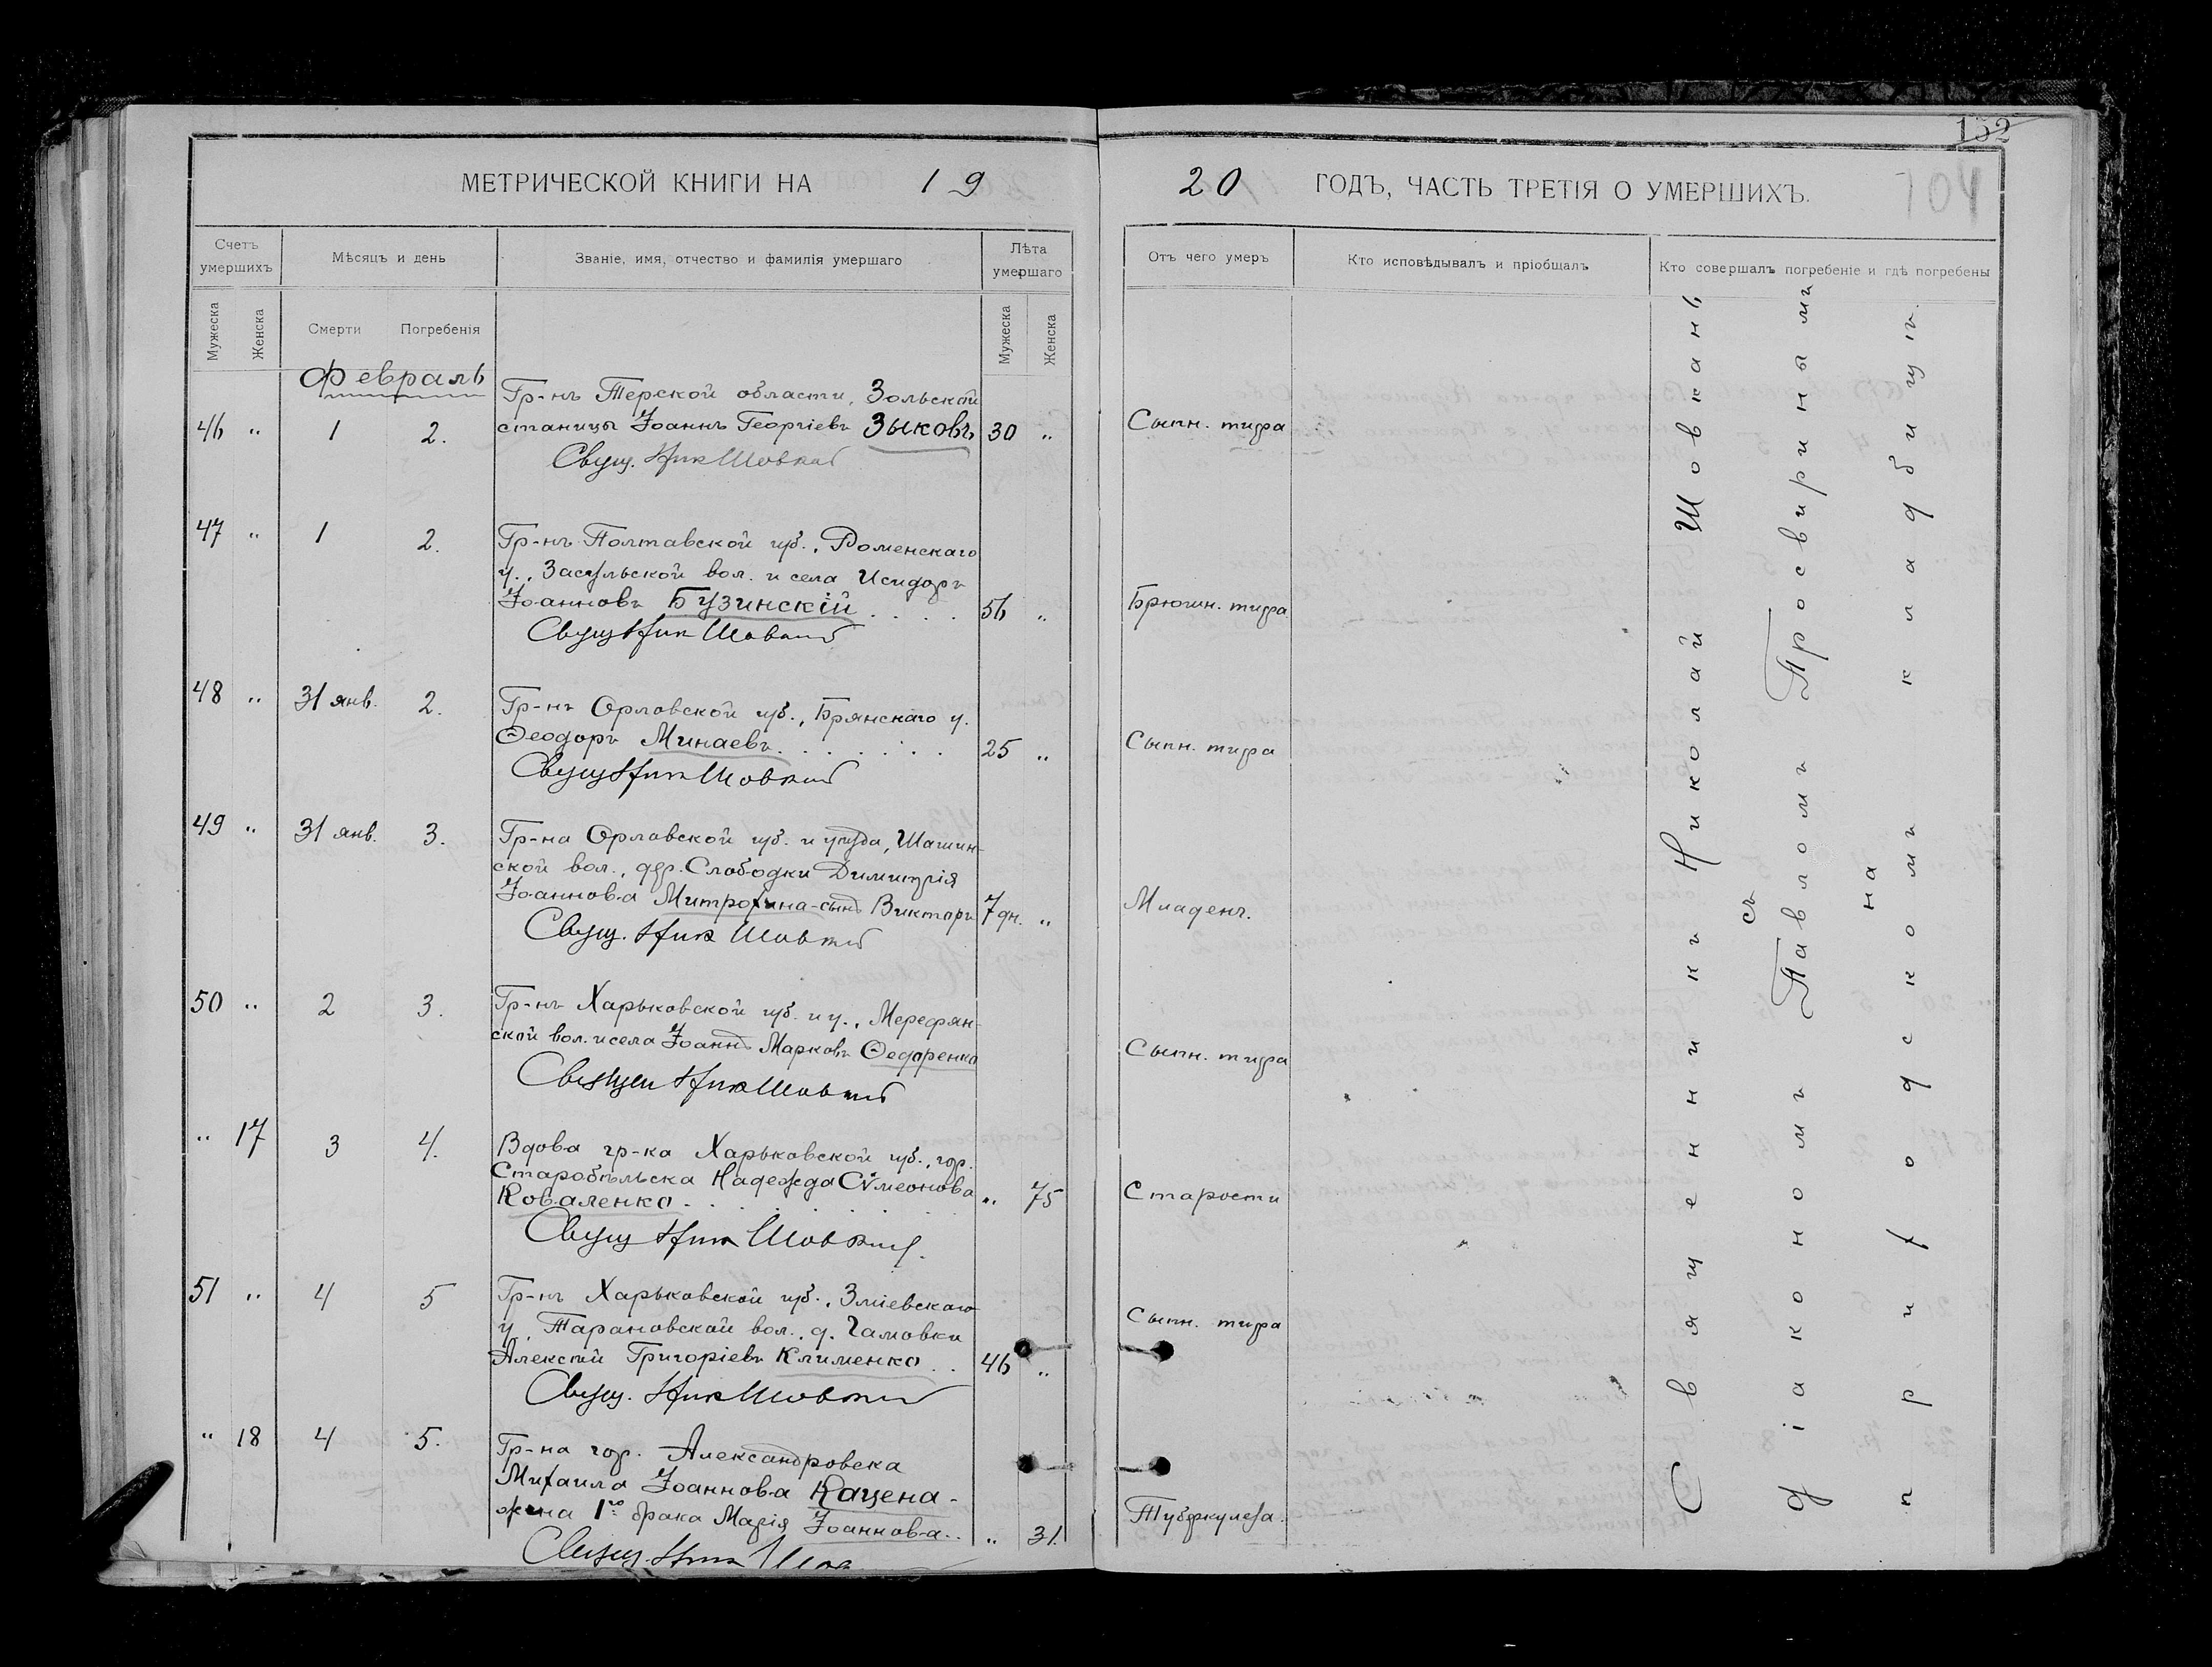 152
МЕТРИЧЕСКОЙ КНИГИ НА 19 20 ГОДЪ, ЧАСТЬ ТРЕТІЯ О УМЕРШИХЪ.
104
Счетъ умершихъ
Мѣсяцъ и день
Званіе, имя, отчество и фамилія умершаго
Лѣта умершаго
Отъ чего умеръ
Кто исповѣдывалъ и пріобщалъ
Кто совершалъ погребеніе и гдѣ погребены
Мужеска
Женска
Смерти
Погребенія
Мужеска
Женска
Февраль
Гр-нъ Терской области, Зольской
46 " 1 2. станицы Іоаннъ Георгіевъ Зыковъ 30 " Сыпн. тифа
Свящ. Ник Шовкан
47 " 1 2. Гр-нъ Полтавской губ., Роменскаго
у., Засульской вол. и села Исидоръ
Іоанновъ Бузинскій . . . . 56 " Брюшн. тифа
Свящ Ник Шовкан
48 " 31 янв. 2. Гр-нъ Орловской губ., Брянскаго у.
Ѳеодоръ Минаевъ . . . . . . 25 " Сыпн. тифа
Свящ Ник Шовкан
49 " 31 янв. 3. Гр-на Орловской губ. и уѣзда, Шашин-
ской вол., дер. Слободки Димитрія
Іоаннова Митрохина-сынъ Викторъ 7 дн. " Младенч.
Свящ. Ник Шовкан
50 " 2 3. Гр-нъ Харьковской губ. и у., Мерефян-
ской вол. и села Іоаннъ Марковъ Ѳедоренко Сыпн. тифа
Священ Ник Шовкан
" 17 3 4. Вдова гр-ка Харьковской губ., гор.
Старобѣльска Надежда Сѵмеонова
Коваленко . . . . . . . " 75 Старости
Свящ Ник Шовкан
51 " 4 5 Гр-нъ Харьковской губ., Зміевскаго
у., Тарановской вол., д. Гамовки
Алексій Григоріевъ Клименко . . 46 " Сыпн. тифа
Свящ. Ник Шовкан
" 18 4 5. Гр-на гор. Александровска
Михаила Іоаннова Кацена-
жена 1го брака Марія Іоаннова.. " 31. Туберкулеза.
Свящ. Ник Шов
Священникъ Николай Шовканъ
съ
діакономъ Павломъ Просвиринымъ
на
приходскомъ кладбищѣ.